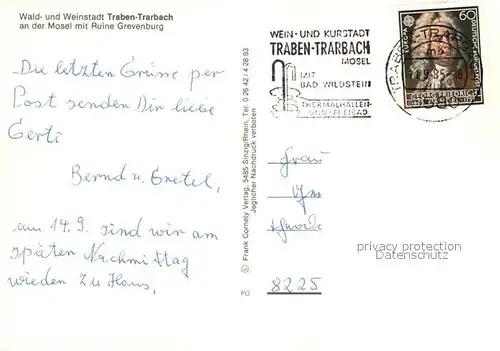 Wald- und Weinstadt Traben-Trarbach
an der Mosel mit Ruine Grevenburg
Die letzten Grüsse per
Post senden Dir liebe
Gerti
Bernd u. Gretel,
am 14.9. sind wir am
späten Nachmittag
wieden zu Haus,
© Frank Cornely Verlag, 5485 Sinzig/Rhein, Tel. 0 26 42 / 4 28 93
Jeglicher Nachdruck verboten
PO
WEIN- UND KURSTADT
TRABEN-TRARBACH
MOSEL
MIT
BAD WILDSTEIN
THERMALHALLEN-
UND FREIBAD
60
EUROPA
GEORG FRIEDRICH
Frau
8225
privacy protection
Datenschutz